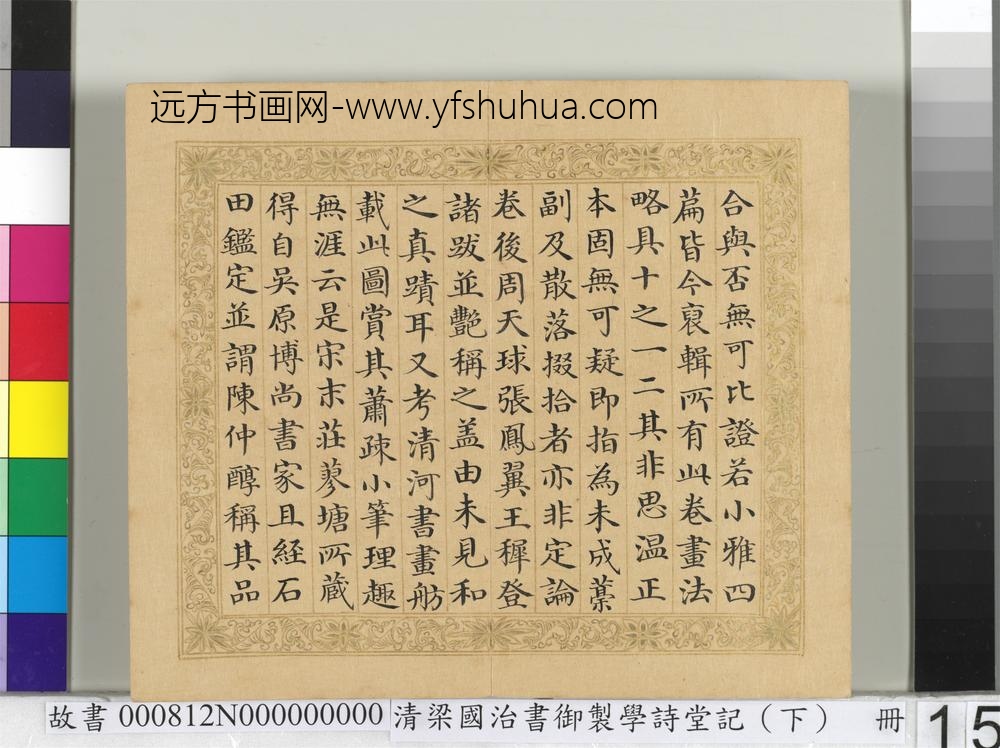 远方书画网-www.yfshuhua.com
合與否無可比證若小雅四
萹皆今裒輯所有此卷畫法
略具十之一二其非思温正
本固無可疑即指為未成藁
副及散落掇拾者亦非定論
卷後周天球張鳳翼王穉登
諸跋並艷稱之盖由未見和
之真蹟耳又考清河書畫舫
載此圖賞其蕭疎小筆理趣
無涯云是宋末莊蓼塘所蔵
得自吳原博尚書家且経石
田鑑定並謂陳仲醇稱其品
故書 000812N000000000 清梁國治書御製學詩堂記（下） 冊 15